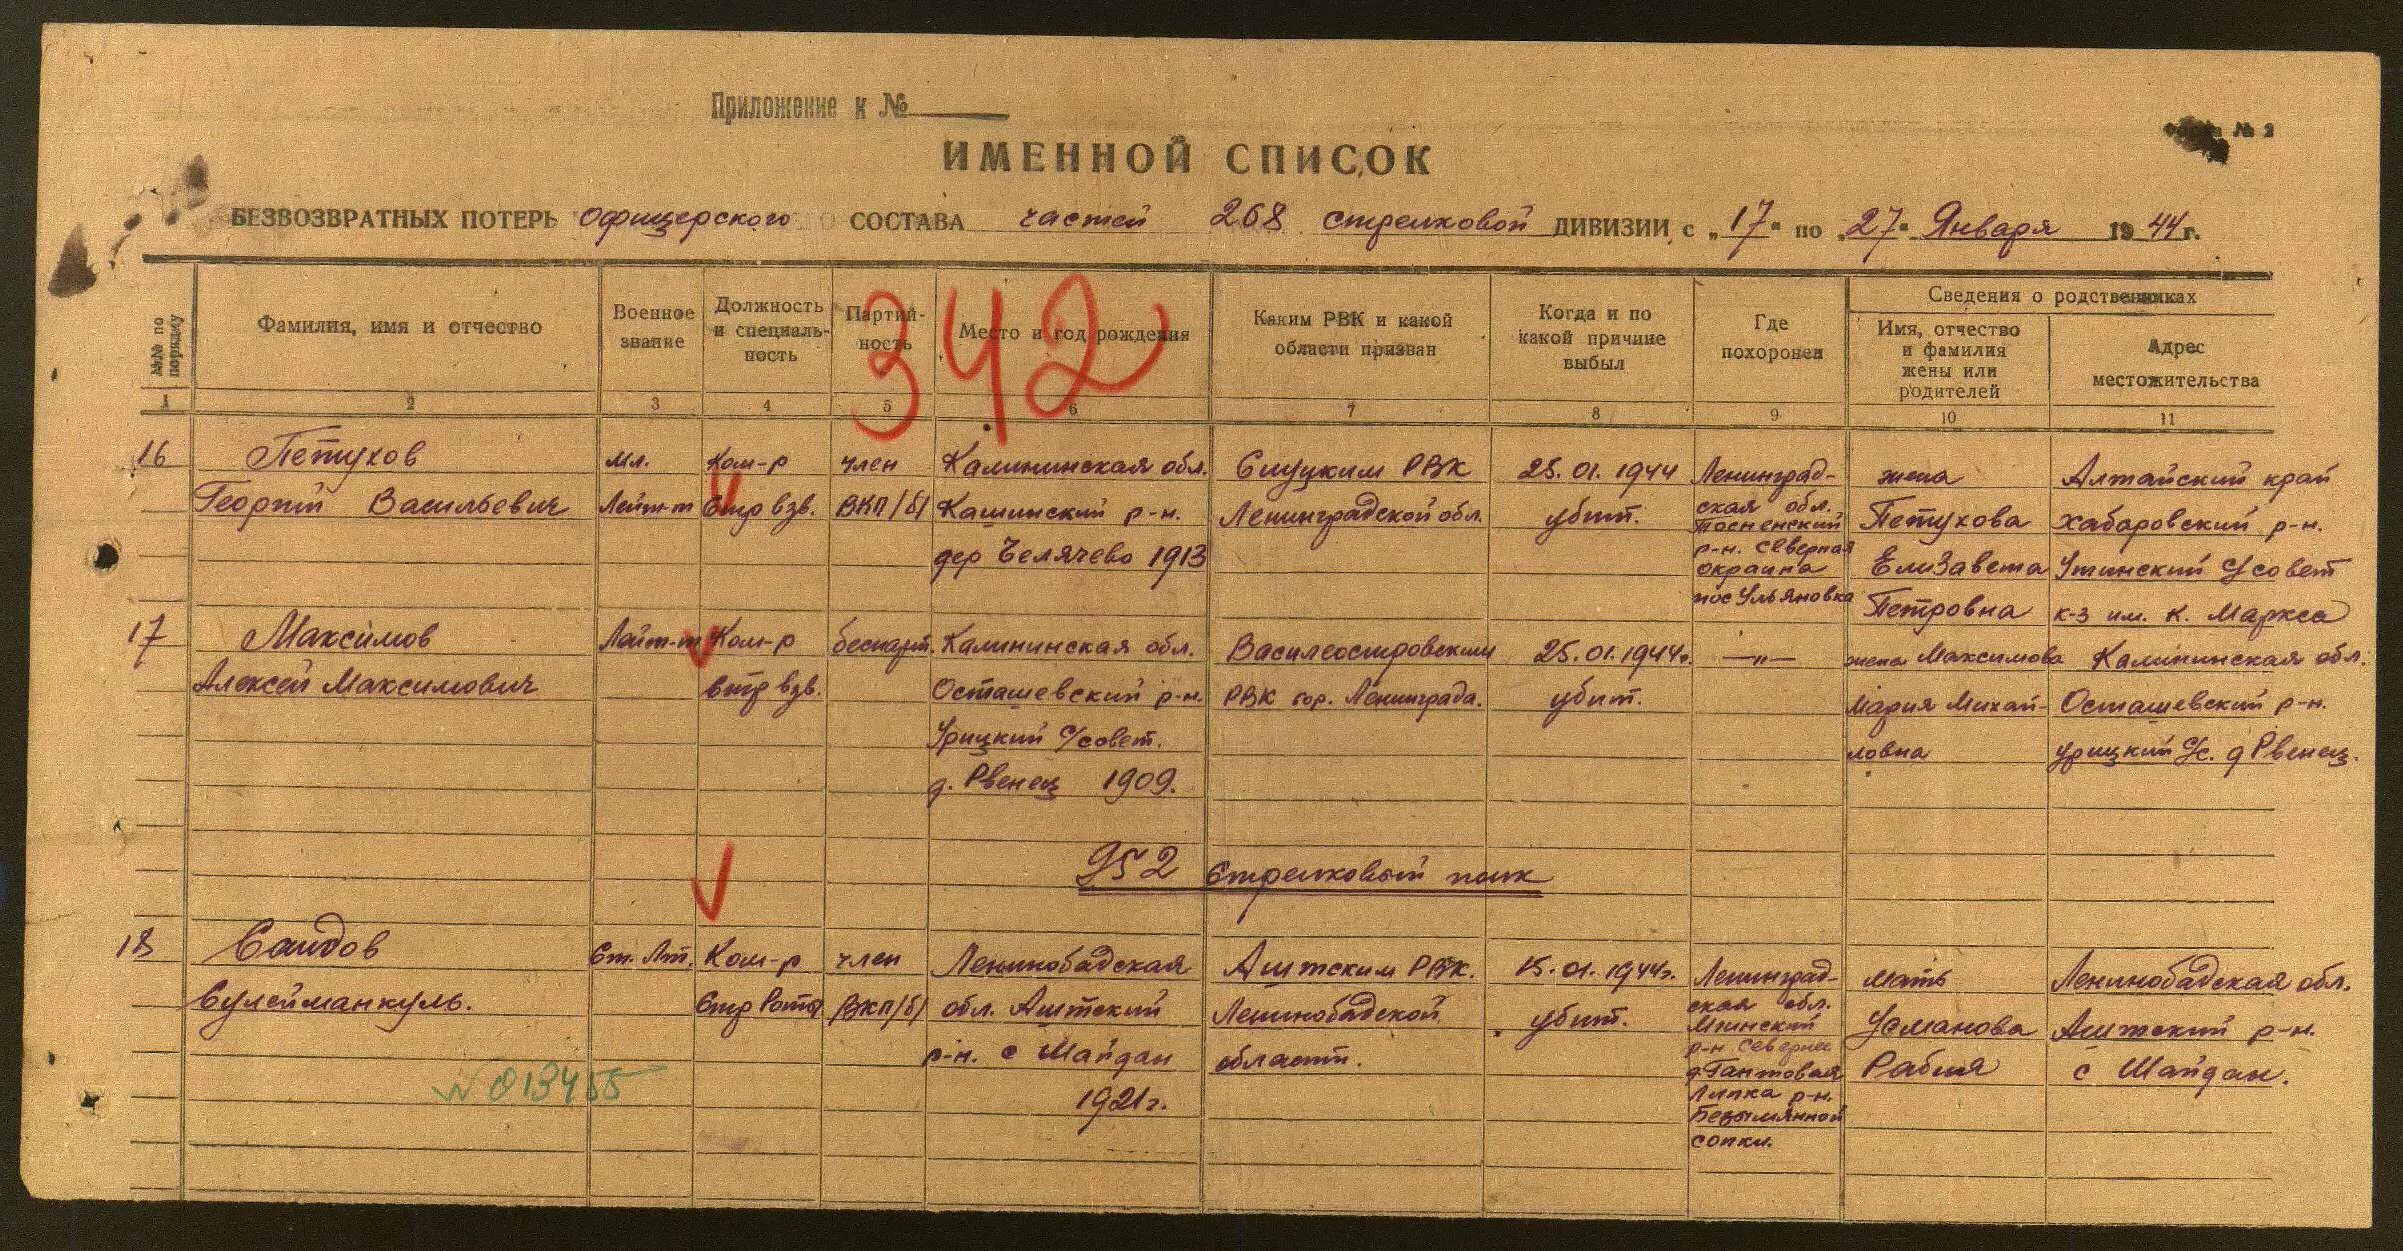 Приложение к №
Форма № 2
ИМЕННОЙ СПИСОК
БЕЗВОЗВРАТНЫХ ПОТЕРЬ офицерского СОСТАВА частей 268 стрелковой ДИВИЗИИ с "17" по "27" Января 1944 г.
№№ по порядку
Фамилия, имя и отчество
Военное звание
Должность и специаль-ность
Партий-ность
342
Место и год рождения
Каким РВК и какой области призван
Когда и по какой причине выбыл
Где похоронен
Сведения о родственниках
Имя, отчество и фамилия жены или родителей
Адрес местожительства
1 2 3 4 5 6 7 8 9 10 11
16 Петухов Мл. Ком-р член Калининская обл. Слуцким РВК 25.01.1944 Ленинград- жена Алтайский край
Георгий Васильевич Лейт-т Стр взв. ВКП/б/ Кашинский р-н. Ленинградской обл. убит. ская обл. Петухова Хабаровский р-н.
Тосненский
дер Челячево 1913 р-н. Северная Елизавета Утинский С/совет
окраина
пос Ульяновка Петровна к-з им. К. Маркса
17 Максимов Лейт-т Ком-р беспарт. Калининская обл. Василеостровским 25.01.1944г. —"— жена Максимова Калининская обл.
Алексей Максимович стр взв. Осташевский р-н. РВК гор. Ленинграда. убит. Мария Михай- Осташевский р-н.
Урицкий С/совет. ловна Урицкий С/с. д Рвенец.
д. Рвенец 1909.
952 Стрелковый полк
18 Саидов Ст. Лт. Ком-р член Ленинобадская Аштским РВК. 15.01.1944г. Ленинград- мать Ленинобадская обл.
Сулейманкуль. Стр Роты ВКП/б/ обл. Аштский Ленинобадской убит. ская обл. Усманова Аштский р-н.
Мгинский
р-н. с Шайдан области. р-н Севернее Рабия с Шайдан.
д Гантовая
1921г. Липка р-н.
Безымянной
сопки.
№ 013455